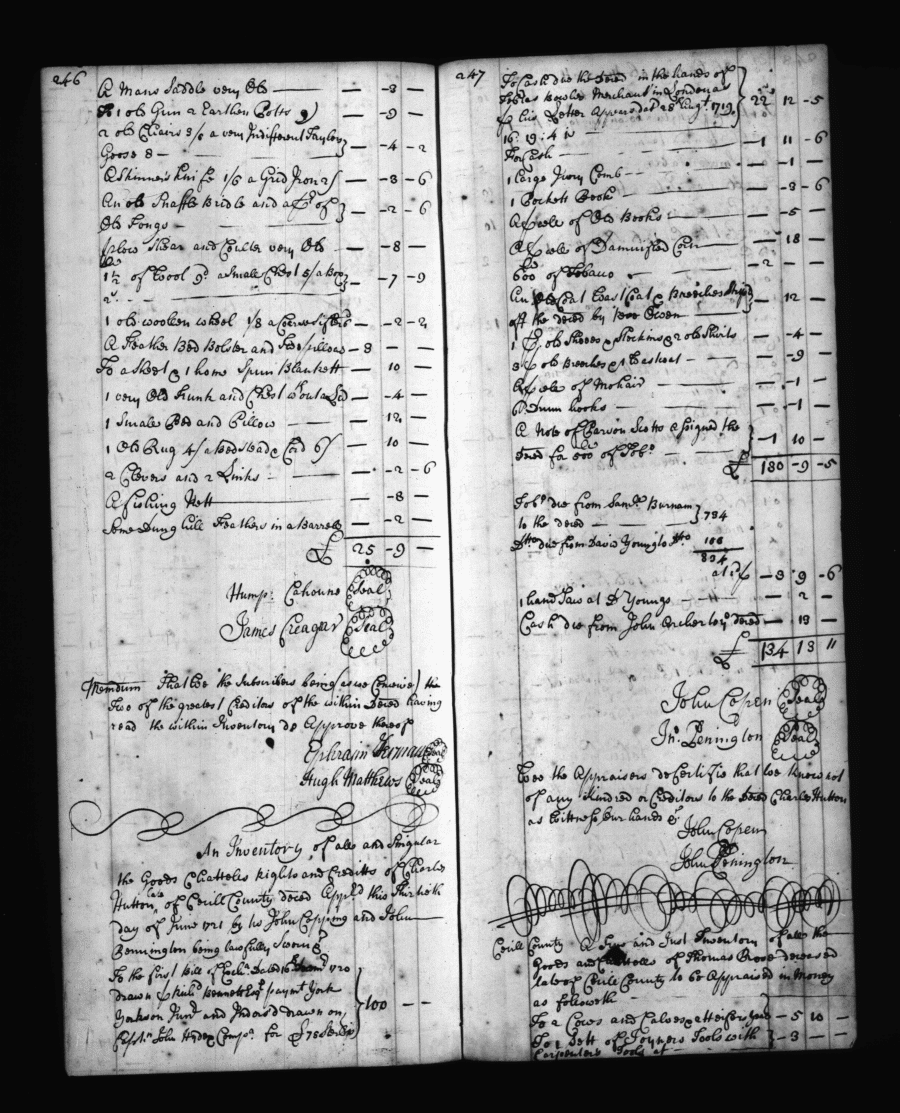 246
A Mans Saddle very Old — — -3 —
To 1 old Gun 2 Earthen Potts 9/ — -9 —
2 old Chairs 3/ a very Indifferent Taylors
Goose 8 — — — -4 -2
A Skinners Knife 1/6 a Grid Iron 2/ — -3 -6
An old Snaffle Bridle and a pr of
Old Tongs — — -2 -6
plow Shear and Coulter very Old — -8 —
of Wool 9d a Small Chest 5/ a Box
2s — — -7 -9
1 old woollen wheel 1/8 — -2 -2
A Feather Bed Bolster and Two pillows -3 — —
To a Sheet & 1 home Spun Blankett — 10 —
1 very Old Trunk and Chest wthout a Lid — -4 —
1 Small Bed and Pillow — — 12 —
1 Old Rug 4/ a Bedstead & Cord 6/ — 10 —
2 Clevers and 2 Links — — -2 -6
A fishing Nett — — -8 —
Some Dung hill Feathers in a Barrell — -2 —
£ 25 -9 —
Hump: Cahoune Seal
James Creagar Seal
Memdum That We the Subscribers being (as we Conceive) the
Two of the greatest Creditors of the within Deced having
read the within Inventory do Approve thereof
Ephraim Herman Seal
Hugh Matthews Seal
An Inventory of all and Singular
the Goods Chattels Rights and Creditts of Charles
Hutton late of Cecill County deced Appd this Thirtieth
day of June 1721 by us John Copping and John
Pennington being lawfully Sworn &c
To the first bill of Exchr Dated 16 1720
drawn Bennett Esqr paymt York
drawn on
Captn John Hyde & Compa for £75
100 — —
247
To Cash due the Deced in the hands of
Tobias Bowles Merchant in London as
p his Letter Appears dat 25 Augt 1719
22 12 -5
16: 19: 4
To Cash — — -1 11 -6
1 Large Ivory Comb — — -1 —
1 Pockett Book — — -3 -6
A pcele of Old Books — — -5 —
A pcele of Damnified Corn — 18 —
600 of Tobacco — — -2 — —
An Old Coat Wast Coat & Breeches Stript
off the deced by — 12 —
1 pr old Shoes & Stockins & 2 old Shirts — -4 —
3 pr old Breeches & 1 Wescoat — — -9 —
A pcele of Mohair — — -1 —
hooks — — -1 —
A Note of Parson Scotts Assigned the
deced for 500 of Tobo — -1 10 —
£ 180 -9 -5
Tobo due from Saml Burnam
to the deced — 734
Ditto due from David Young to Ditto 100
834
at — -3 9 -6
1 hand Saw at D Youngs — — 2 —
Cash due from John Archer deced — 13 —
£ 134 13 11
John Copen Seal
Jno Penington Seal
Wee the Appraisers do Certifie that we know not
of any Kindred or Creditors to the Deced Charles Hutton
as Wittness Our hands &c
John Copen
John Penington
Cecill County A True and Just Inventory of all the
Goods and Chattels of Thomas deceased
late of Cecill County to be Appraised in Money
as followeth
To 2 Cows and Calves & a Heifer — 5 10 —
To 1 Sett of Joyners Tools with
Carpenters Tools at — 3 — —